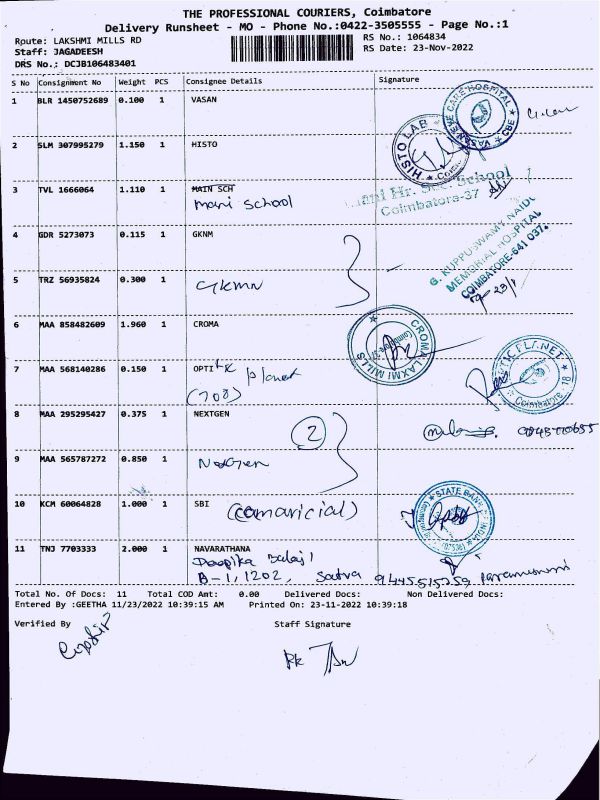 THE PROFESSIONAL COURIERS, Coimbatore
Delivery Runsheet - MO - Phone No.:0422-3505555 - Page No.:1
Route: LAKSHMI MILLS RD RS No.: 1064834
Staff: JAGADEESH RS Date: 23-Nov-2022
DRS No.: DCJB106483401
S No Consignment No Weight PCS Consignee Details Signature
1 BLR 1450752689 0.100 1 VASAN
VASAN EYE CARE HOSPITAL CBE
2 SLM 307995279 1.150 1 HISTO
HISTO LAB
3 TVL 1666064 1.110 1 MAIN SCH
Mani School
Mani Hr. Sec. School
Coimbatora-37
4 GDR 5273073 0.115 1 GKNM
G. KUPPUSWAMY NAIDU
MEMORIAL HOSPITAL
COIMBATORE-641 037.
5 TRZ 56935824 0.300 1 GKMN
6 MAA 858482609 1.960 1 CROMA
CROMA LAXMI MILLS
7 MAA 568140286 0.150 1 OPTI planet
(708)
8 MAA 295295427 0.375 1 NEXTGEN
2
9 MAA 565787272 0.850 1 NextGen
10 KCM 60064828 1.000 1 SBI (comaricial)
STATE BANK INDIA
11 TNJ 7703333 2.000 1 NAVARATHANA
Deepika Balaji
B-1, 1202,
Total No. Of Docs: 11 Total COD Amt: 0.00 Delivered Docs: Non Delivered Docs:
Entered By :GEETHA 11/23/2022 10:39:15 AM Printed On: 23-11-2022 10:39:18
Verified By Staff Signature